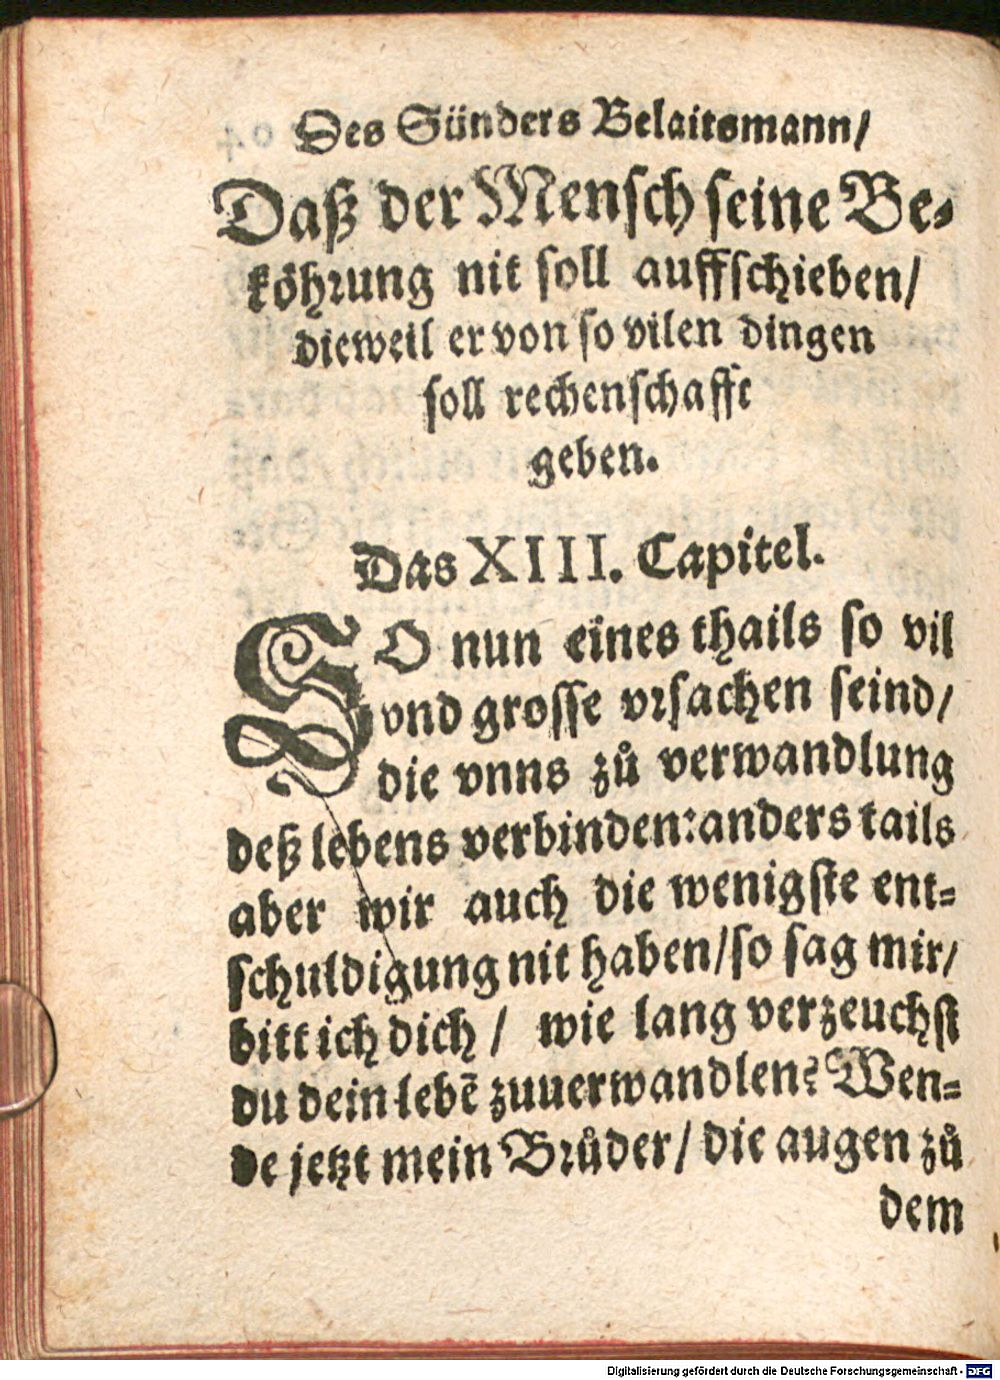 Des Sünders Belaitsmann/
Daß der Mensch seine Be-
köhrung nit soll auffschieben/
dieweil er von so vilen dingen
soll rechenschafft
geben.
Das XIII. Capitel.
SO nun eines thails so vil
vnd grosse vrsachen seind/
die vnns zů verwandlung
deß lebens verbinden: anders tails
aber wir auch die wenigste ent-
schuldigung nit haben/ so sag mir/
bitt ich dich/ wie lang verzeuchst
du dein lebẽ zuuerwandlen? Wen-
de jetzt mein Brůder/ die augen zů
dem
Digitalisierung gefördert durch die Deutsche Forschungsgemeinschaft - DFG